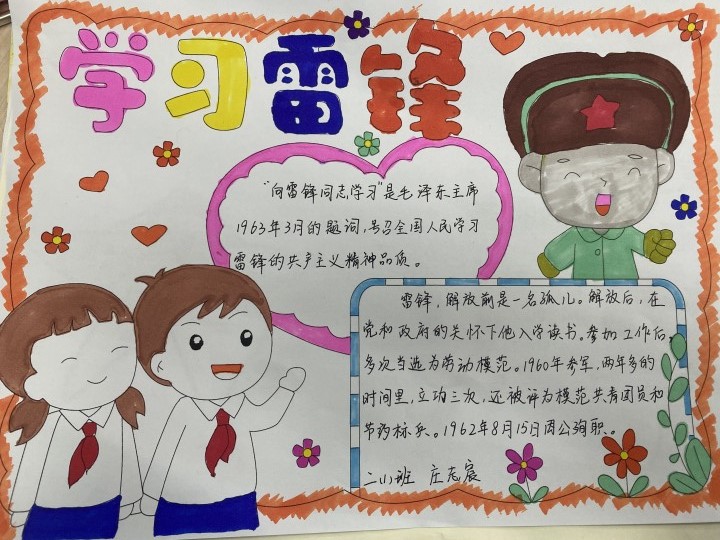 学习雷锋
“向雷锋同志学习”是毛泽东主席
1963年3月的题词，号召全国人民学习
雷锋的共产主义精神品质。
雷锋，解放前是一名孤儿。解放后，在
党和政府的关怀下他入学读书。参加工作后，
多次当选为劳动模范。1960年参军，两年多的
时间里，立功三次，还被评为模范共青团员和
节约标兵。1962年8月15日因公殉职。
二(1)班 庄志宸